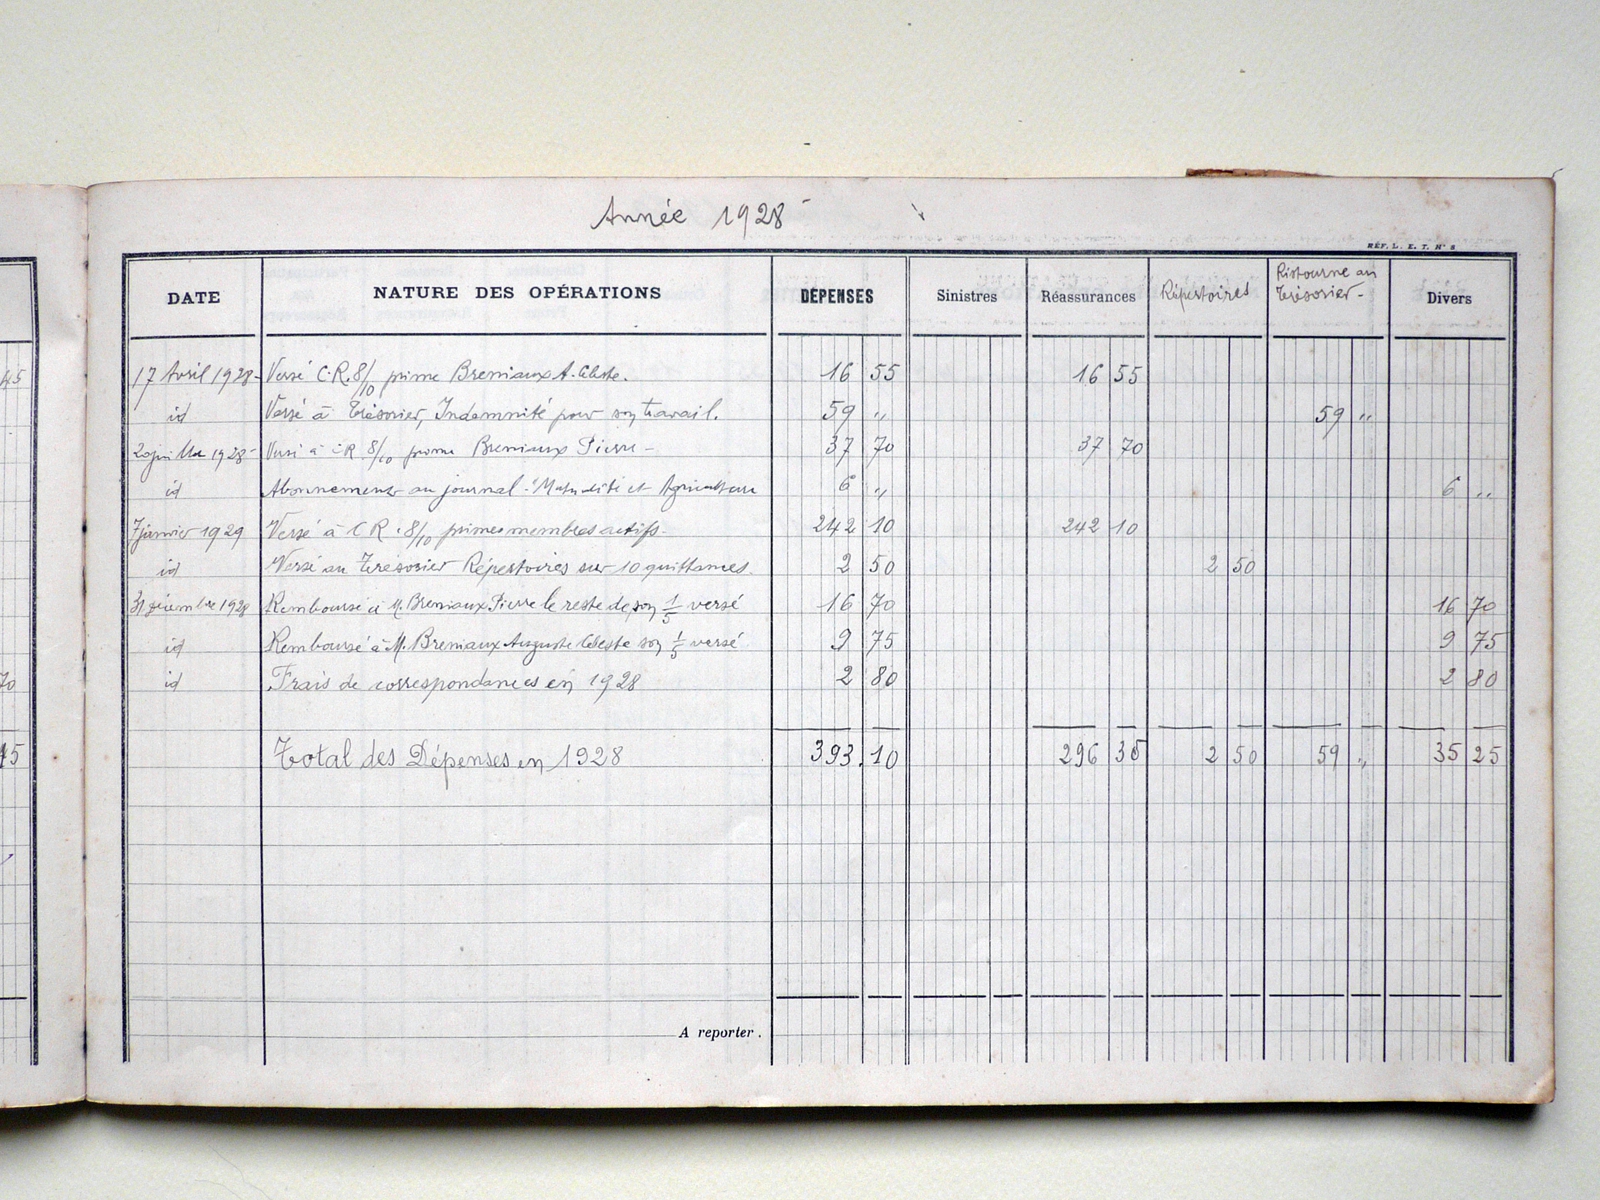 Année 1928
RÉF. L. E. T. N° 8
DATE NATURE DES OPÉRATIONS DÉPENSES Sinistres Réassurances Répertoires Ristourne au Trésorier - Divers
45
17 Avril 1928 - Versé C.R. 8/10 prime Breniaux A. Céleste. 16 55 16 55
id Versé à Trésorier, Indemnité pour son travail. 59 " 59 "
20 juillet 1928 - Versé à CR 8/10 prime Breniaux Pierre - 37 70 37 70
id Abonnement au journal "Mutualité et Agriculture 6 " 6 "
7 janvier 1929 Versé à C R. 8/10 primes membres actifs - 242 10 242 10
id Versé au Trésorier Répertoires sur 10 quittances. 2 50 2 50
31 décembre 1928 Remboursé à M. Breniaux Pierre le reste de son 1/5 versé 16 70 16 70
id Remboursé à M. Breniaux Auguste Céleste son 1/5 versé 9 75 9 75
70 id Frais de correspondances en 1928 2 80 2 80
Total des Dépenses en 1928 393.10 296 35 2 50 59 " 35 25
A reporter.